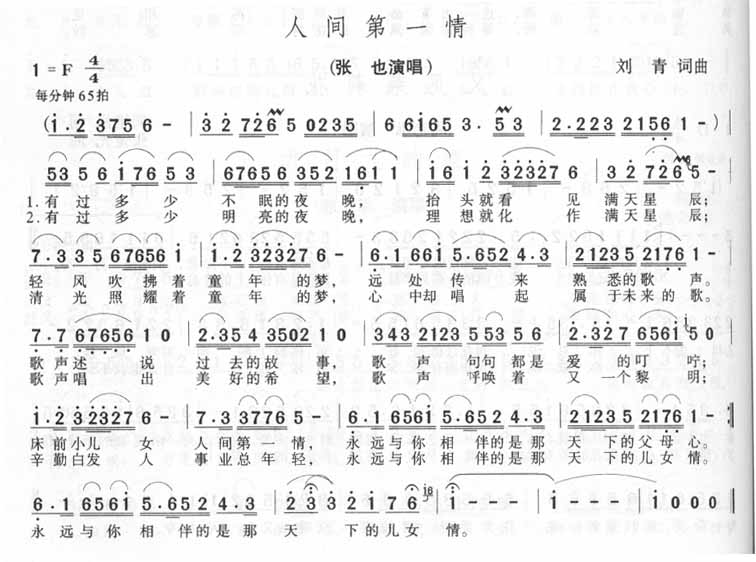 人间第一情
1=F 4/4 (张 也演唱) 刘 青 词曲
每分钟65拍
(1·2 3 7 5 6 - | 3 2 7 2 6 5 0 2 3 5 | 6 6 1 6 5 3· 5 3 | 2·2 2 3 2 1 5 6 1 -)
5 3 5 6 1 6 5 3 | 6 7 6 5 6 3 5 2 1 6 1 1 | 1 6 1 2 3 2 3 2 7 6 | 3 2 7 2 6 5 -
1.有 过 多 少 不 眠的夜 晚, 抬 头就看 见 满天星 辰;
2.有 过 多 少 明 亮的夜 晚, 理 想就化 作 满天星 辰;
7·3 3 5 6 7 6 5 6 1 | 1·2 3 2 3 2 7 6 - | 6·1 6 6 1 5·6 5 2 4·3 | 2 1 2 3 5 2 1 7 6 1 -
轻 风 吹 拂着 童 年 的梦, 远 处传 来 熟 悉的歌 声。
清 光 照 耀着 童 年 的梦, 心 中却 唱 起 属 于未来的 歌。
7·7 6 7 6 5 6 1 0 | 2·3 5 4 3 5 0 2 1 0 | 3 4 3 2 1 2 3 5 5 3 5 6 | 2·3 2 7 6 5 6 1 5 0
歌 声述 说 过 去的故 事, 歌 声 句句 都是 爱 的叮 咛;
歌 声唱 出 美 好的希 望, 歌 声 呼唤 着 又 一个黎 明;
1·2 3 2 3 2 7 6 - | 7·3 3 7 7 6 5 - | 6·1 6 5 6 1 5·6 5 2 4·3 | 2 1 2 3 5 2 1 7 6 1 - :‖
床 前小儿 女 人 间第一 情, 永 远与你 相 伴的是那 天 下的父母 心。
辛 勤白发 人 事 业总年 轻, 永 远与你 相 伴的是那 天 下的儿女 情。
6·1 6 5 6 1 5·6 5 2 4·3 | 2 3 3 - - | 2 1 7 6 1 - - - | 1 - - - | 1 0 0 0 ‖
永 远与 你 相 伴的是 那 天 下的儿女 情。